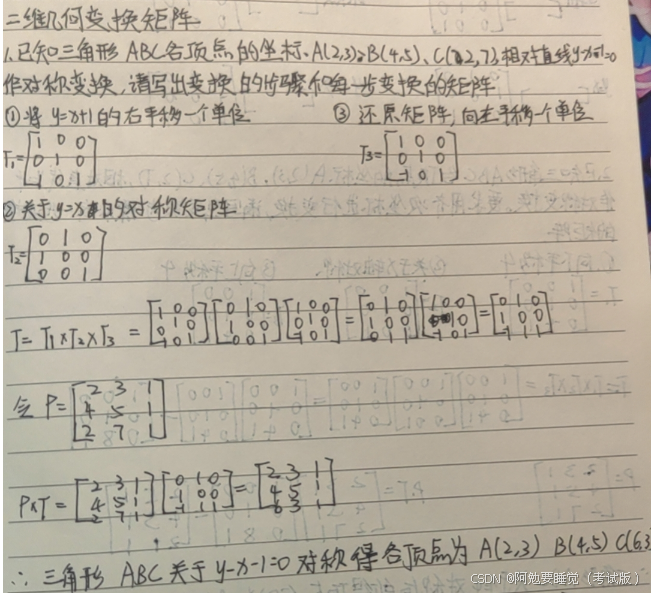 二维几何变换矩阵
1.已知三角形ABC各顶点的坐标A(2,3)、B(4,5)、C(2,7),相对直线y-x-1=0
作对称变换,请写出变换的步骤和每一步变换的矩阵
①将y=x+1的右平移一个单位 ③还原矩阵,向左平移一个单位
T1=[1 0 0 T3=[1 0 0
0 1 0 0 1 0
1 0 1] -1 0 1]
②关于y=x的对称矩阵
T2=[0 1 0
1 0 0
0 0 1]
T=T1×T2×T3 = [1 0 0 [0 1 0 [1 0 0 = [0 1 0 [1 0 0 = [0 1 0
0 1 0 1 0 0 0 1 0 1 0 0 0 1 0 1 0 0
1 0 1] 0 0 1] -1 0 1] 0 1 1] -1 0 1] -1 1 1]
令P=[2 3 1
4 5 1
2 7 1]
P×T=[2 3 1 [0 1 0 = [2 3 1
4 5 1 1 0 0 4 5 1
2 7 1] -1 1 1] 6 3 1]
∴三角形ABC关于y-x-1=0对称得各顶点为A(2,3) B(4,5) C(6,3
CSDN @阿勉要睡觉(考试版)